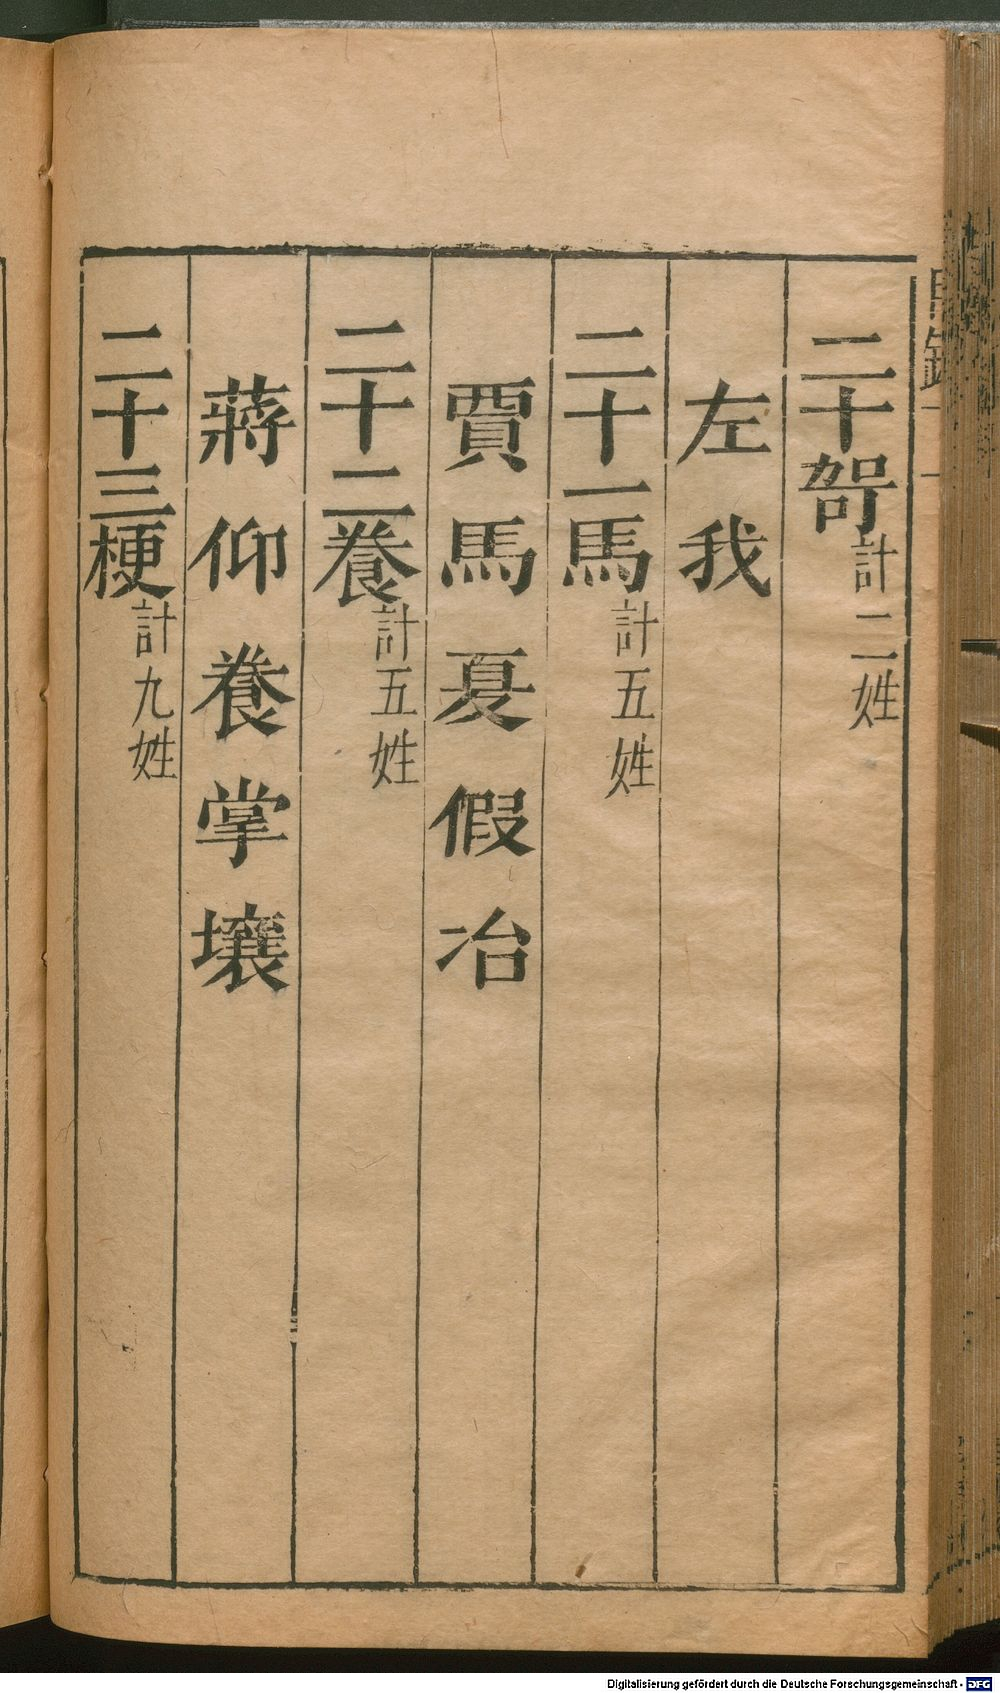 二十哿計二姓
左我
二十一馬計五姓
賈馬夏假冶
二十二養計五姓
蔣仰養掌壤
二十三梗計九姓
Digitalisierung gefördert durch die Deutsche Forschungsgemeinschaft - DFG